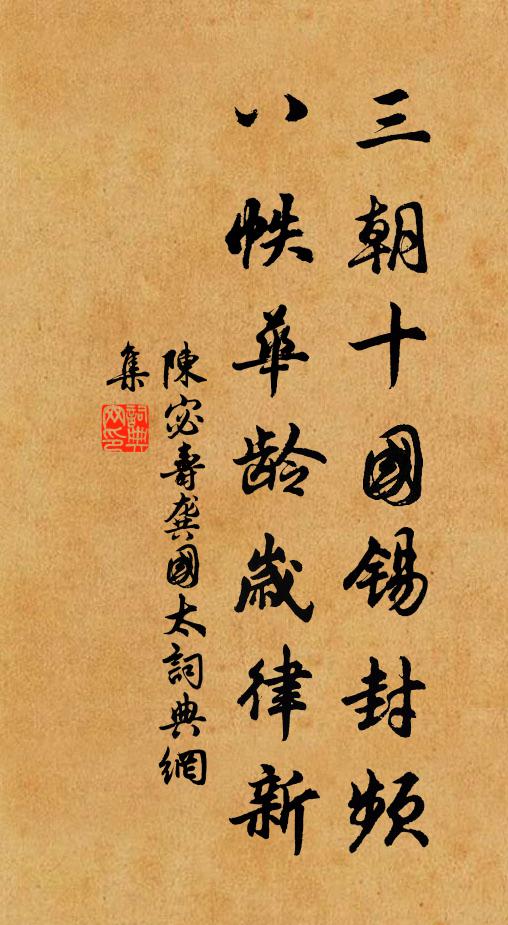 三朝十國錫封頻
八帙華齡歲律新
陳宓壽龔國太詞典網
集
詞典網印